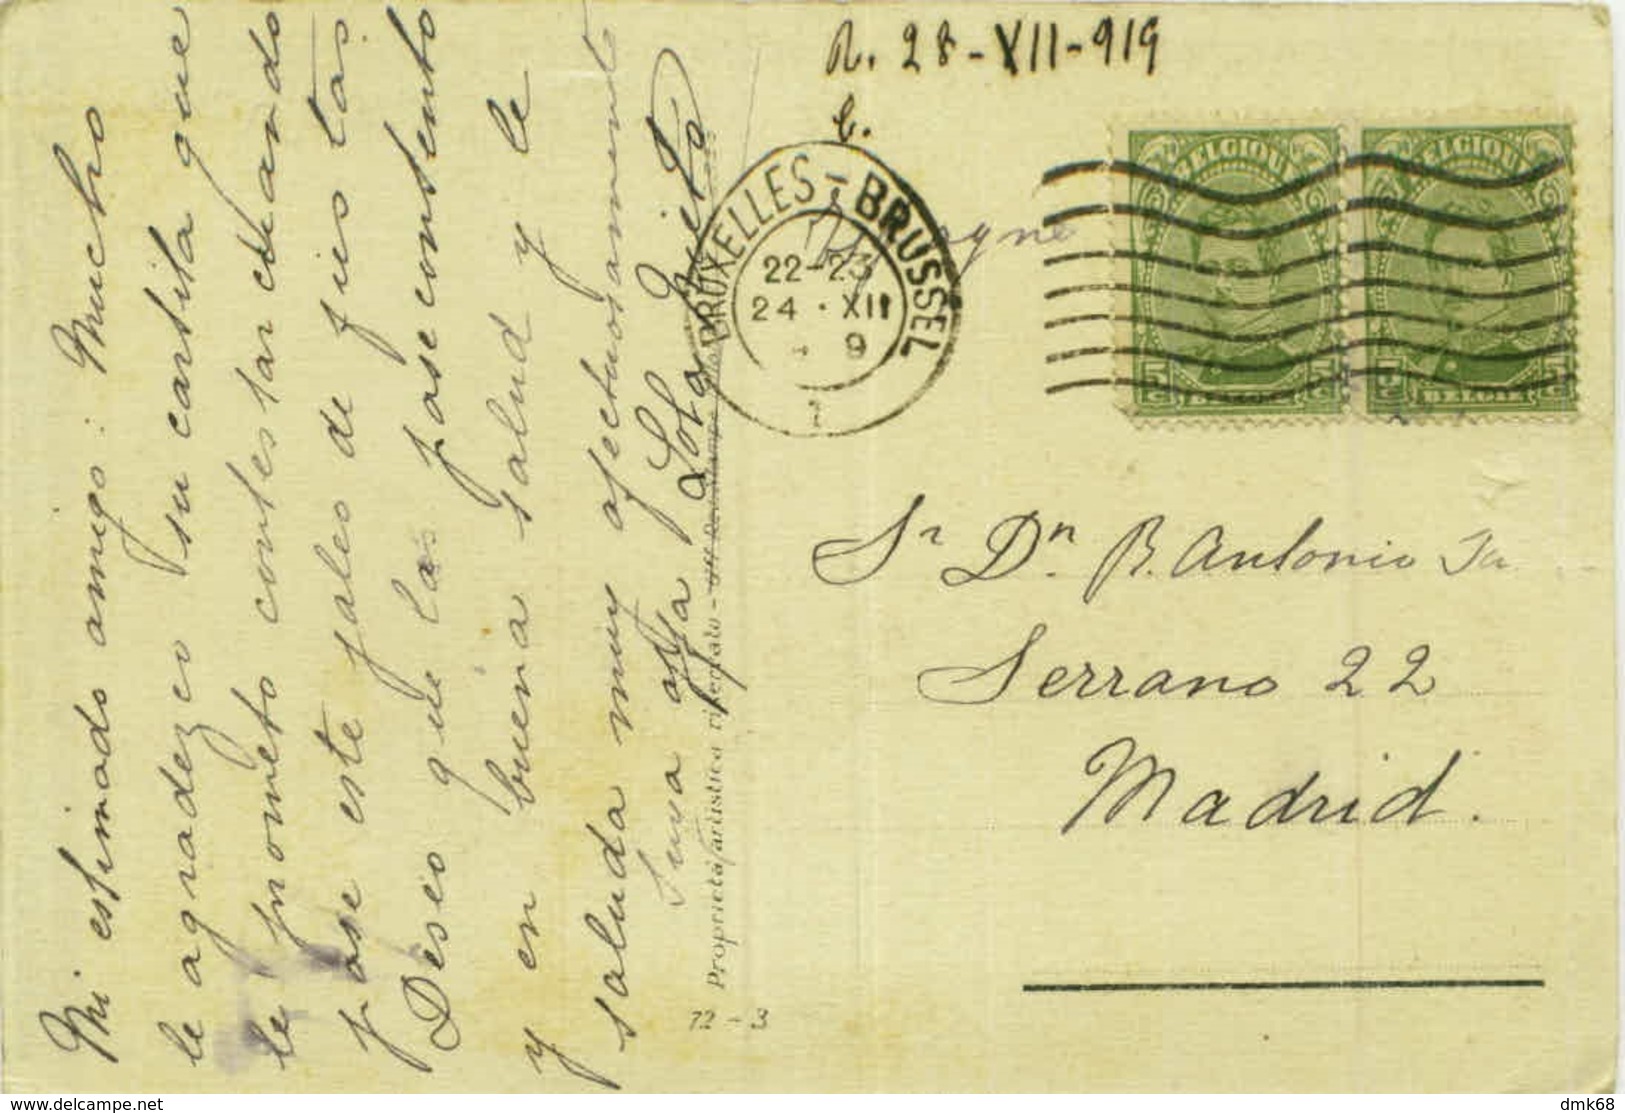 Mi estimado amigo: Mucho
le agradezco su cartita que
le prometo contestar cuando
pase este jaleo de fies tas
Deseo que las pase contento
y en buena salud y le
saluda muy afectuosamente
Suya affa Lola
Proprietà artistica riservata
72-3
R. 28-XII-919
C.
BRUXELLES-BRUSSEL
22-23
24 · XII
9
1
BELGIQUE
5c
BELGIE
BELGIQUE
5c
BELGIE
Sr Dn. R. Antonio
Serrano 22
Madrid.
www.delcampe.net
dmk68